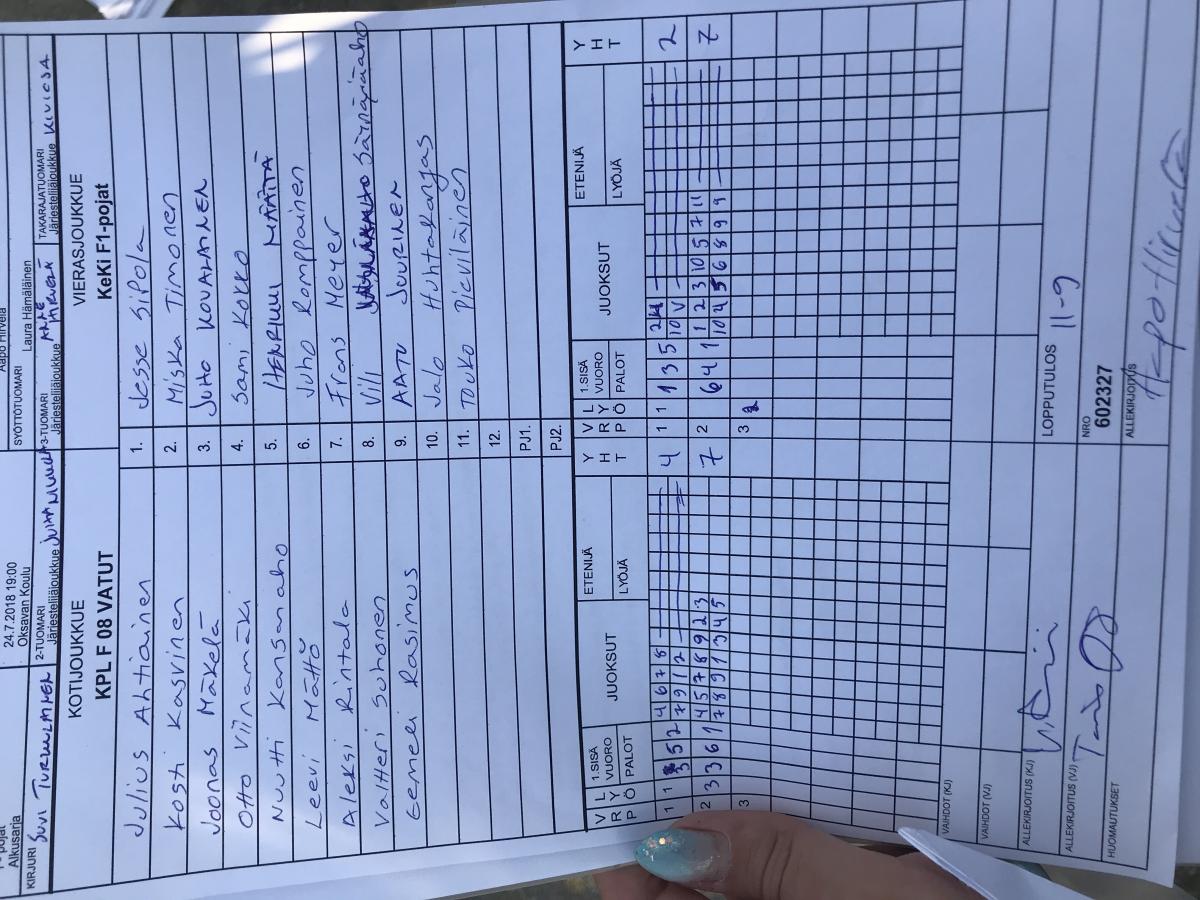 Aapo Hirvelä
24.7.2018 19:00
SYÖTTÖTUOMARI Laura Hämäläinen
Alkusarja
Oksavan Koulu
KIRJURI SUVI TURULAINEN
2-TUOMARI
Järjestelijäjoukkue
3-TUOMARI
Järjestelijäjoukkue
TAKARAJATUOMARI
Järjestelijäjoukkue
KOTIJOUKKUE VIERASJOUKKUE
KPL F 08 VATUT KeKi F1-pojat
Julius Ahtiainen 1. Jesse Sipola
Kosti Kasvinen 2. Miska Timonen
Joonas Mäkelä 3. JUHO KOVALAINEN
Otto Viinamäki 4. Sami KOKKO
Nuutti Kansanaho 5. HENRIKKI MÄÄTTÄ
Leevi Mättö 6. Juho Romppainen
Aleksi Rintala 7. Frans Meyer
Valtteri Suhonen 8. Vili Särinäjääaho
Eemeli Rasimus 9. AATU JUURINEN
10. Jalo Huhtakangas
11. TOUKO Pieviläinen
12.
PJ1.
PJ2.
V R P L Y Ö 1.SISÄ VUORO PALOT JUOKSUT ETENIJÄ LYÖJÄ Y H T V R P L Y Ö 1.SISÄ VUORO PALOT JUOKSUT ETENIJÄ LYÖJÄ Y H T
1 1 5 2 4 6 7 8 4 1 1 1 3 5 2 4 2
7 9 1 2 10 V
2 3 3 6 1 4 5 7 8 9 2 3 7 2 6 4 1 1 2 3 10 5 7 11 7
7 8 9 1 3 4 5 10 4 5 6 8 9 9
3 3
VAIHDOT (KJ)
VAIHDOT (VJ)
ALLEKIRJOITUS (KJ) LOPPUTULOS 11-9
ALLEKIRJOITUS (VJ) NRO
602327
HUOMAUTUKSET ALLEKIRJOITUS